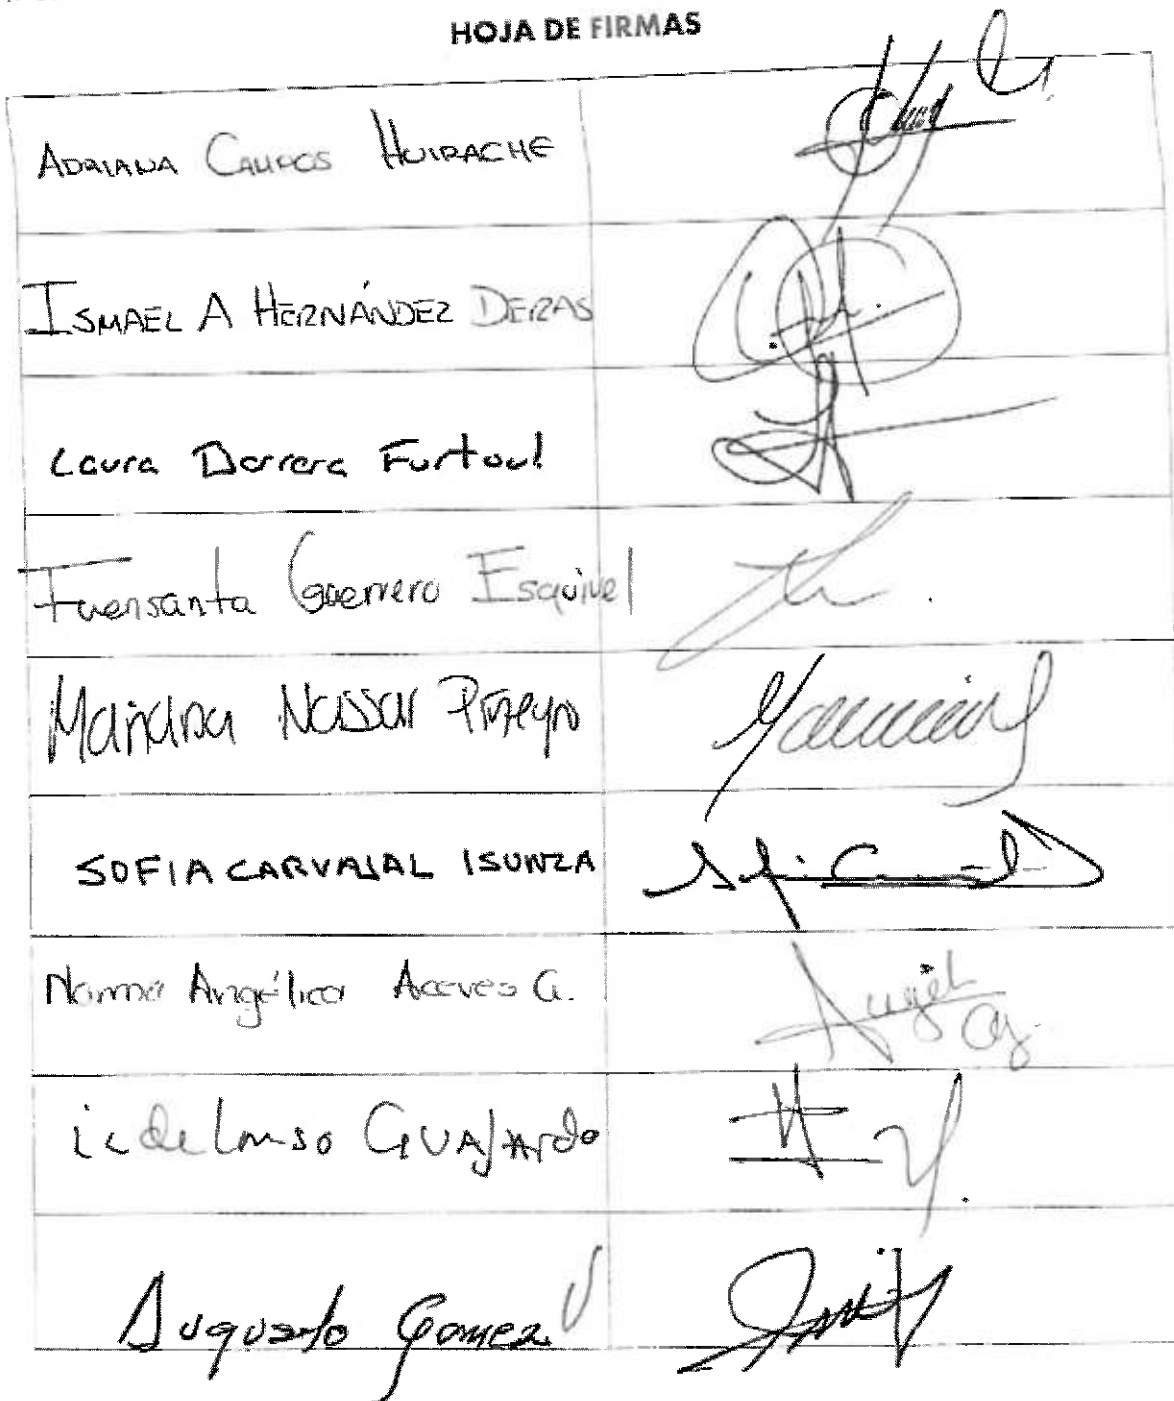 HOJA DE FIRMAS
ADRIANA CAMPOS HUIRACHE
ISMAEL A HERNÁNDEZ DERAS
Laura Barrera Fortoul
Fuensanta Guerrero Esquivel
Mariana Nassar Piñeyro
SOFIA CARVAJAL ISUNZA
Norma Angélica Aceves G.
GUAJARDO
Augusto Gomez V